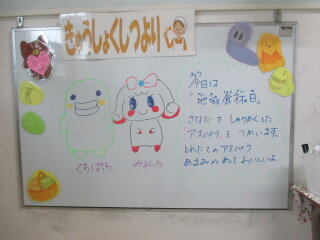 きゅうしょくしつより
今日は
「地域食材の日」
さなだで しゅうかくした
アスパラを つかいます。
とれたての アスパラ
あまみがあっておいしいよ
くちぱっち
みるくっち